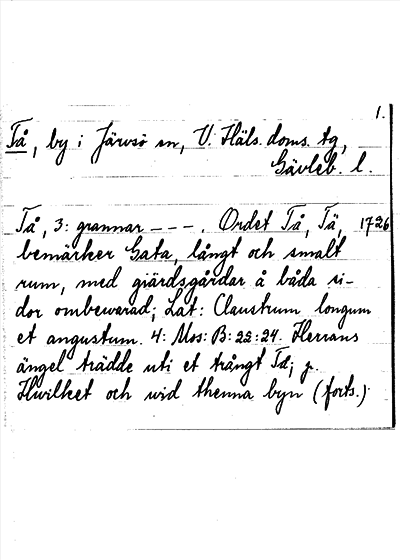 1.
Tå, by i Järvsö sn, V. Häls. doms. tg,
Gävleb. l.
Tå, 3: grannar – – – . Ordet Tå, Tä, 1726
bemärker Gata, långt och smalt
rum, med giärdsgårdar å båda si-
dor ombewarad; Lat: Claustrum longum
et angustum. 4: Mos: B: 22: 24. Herrans
ängel trädde uti et trångt Tä;
Hwilket och wid thenna byn (forts.)